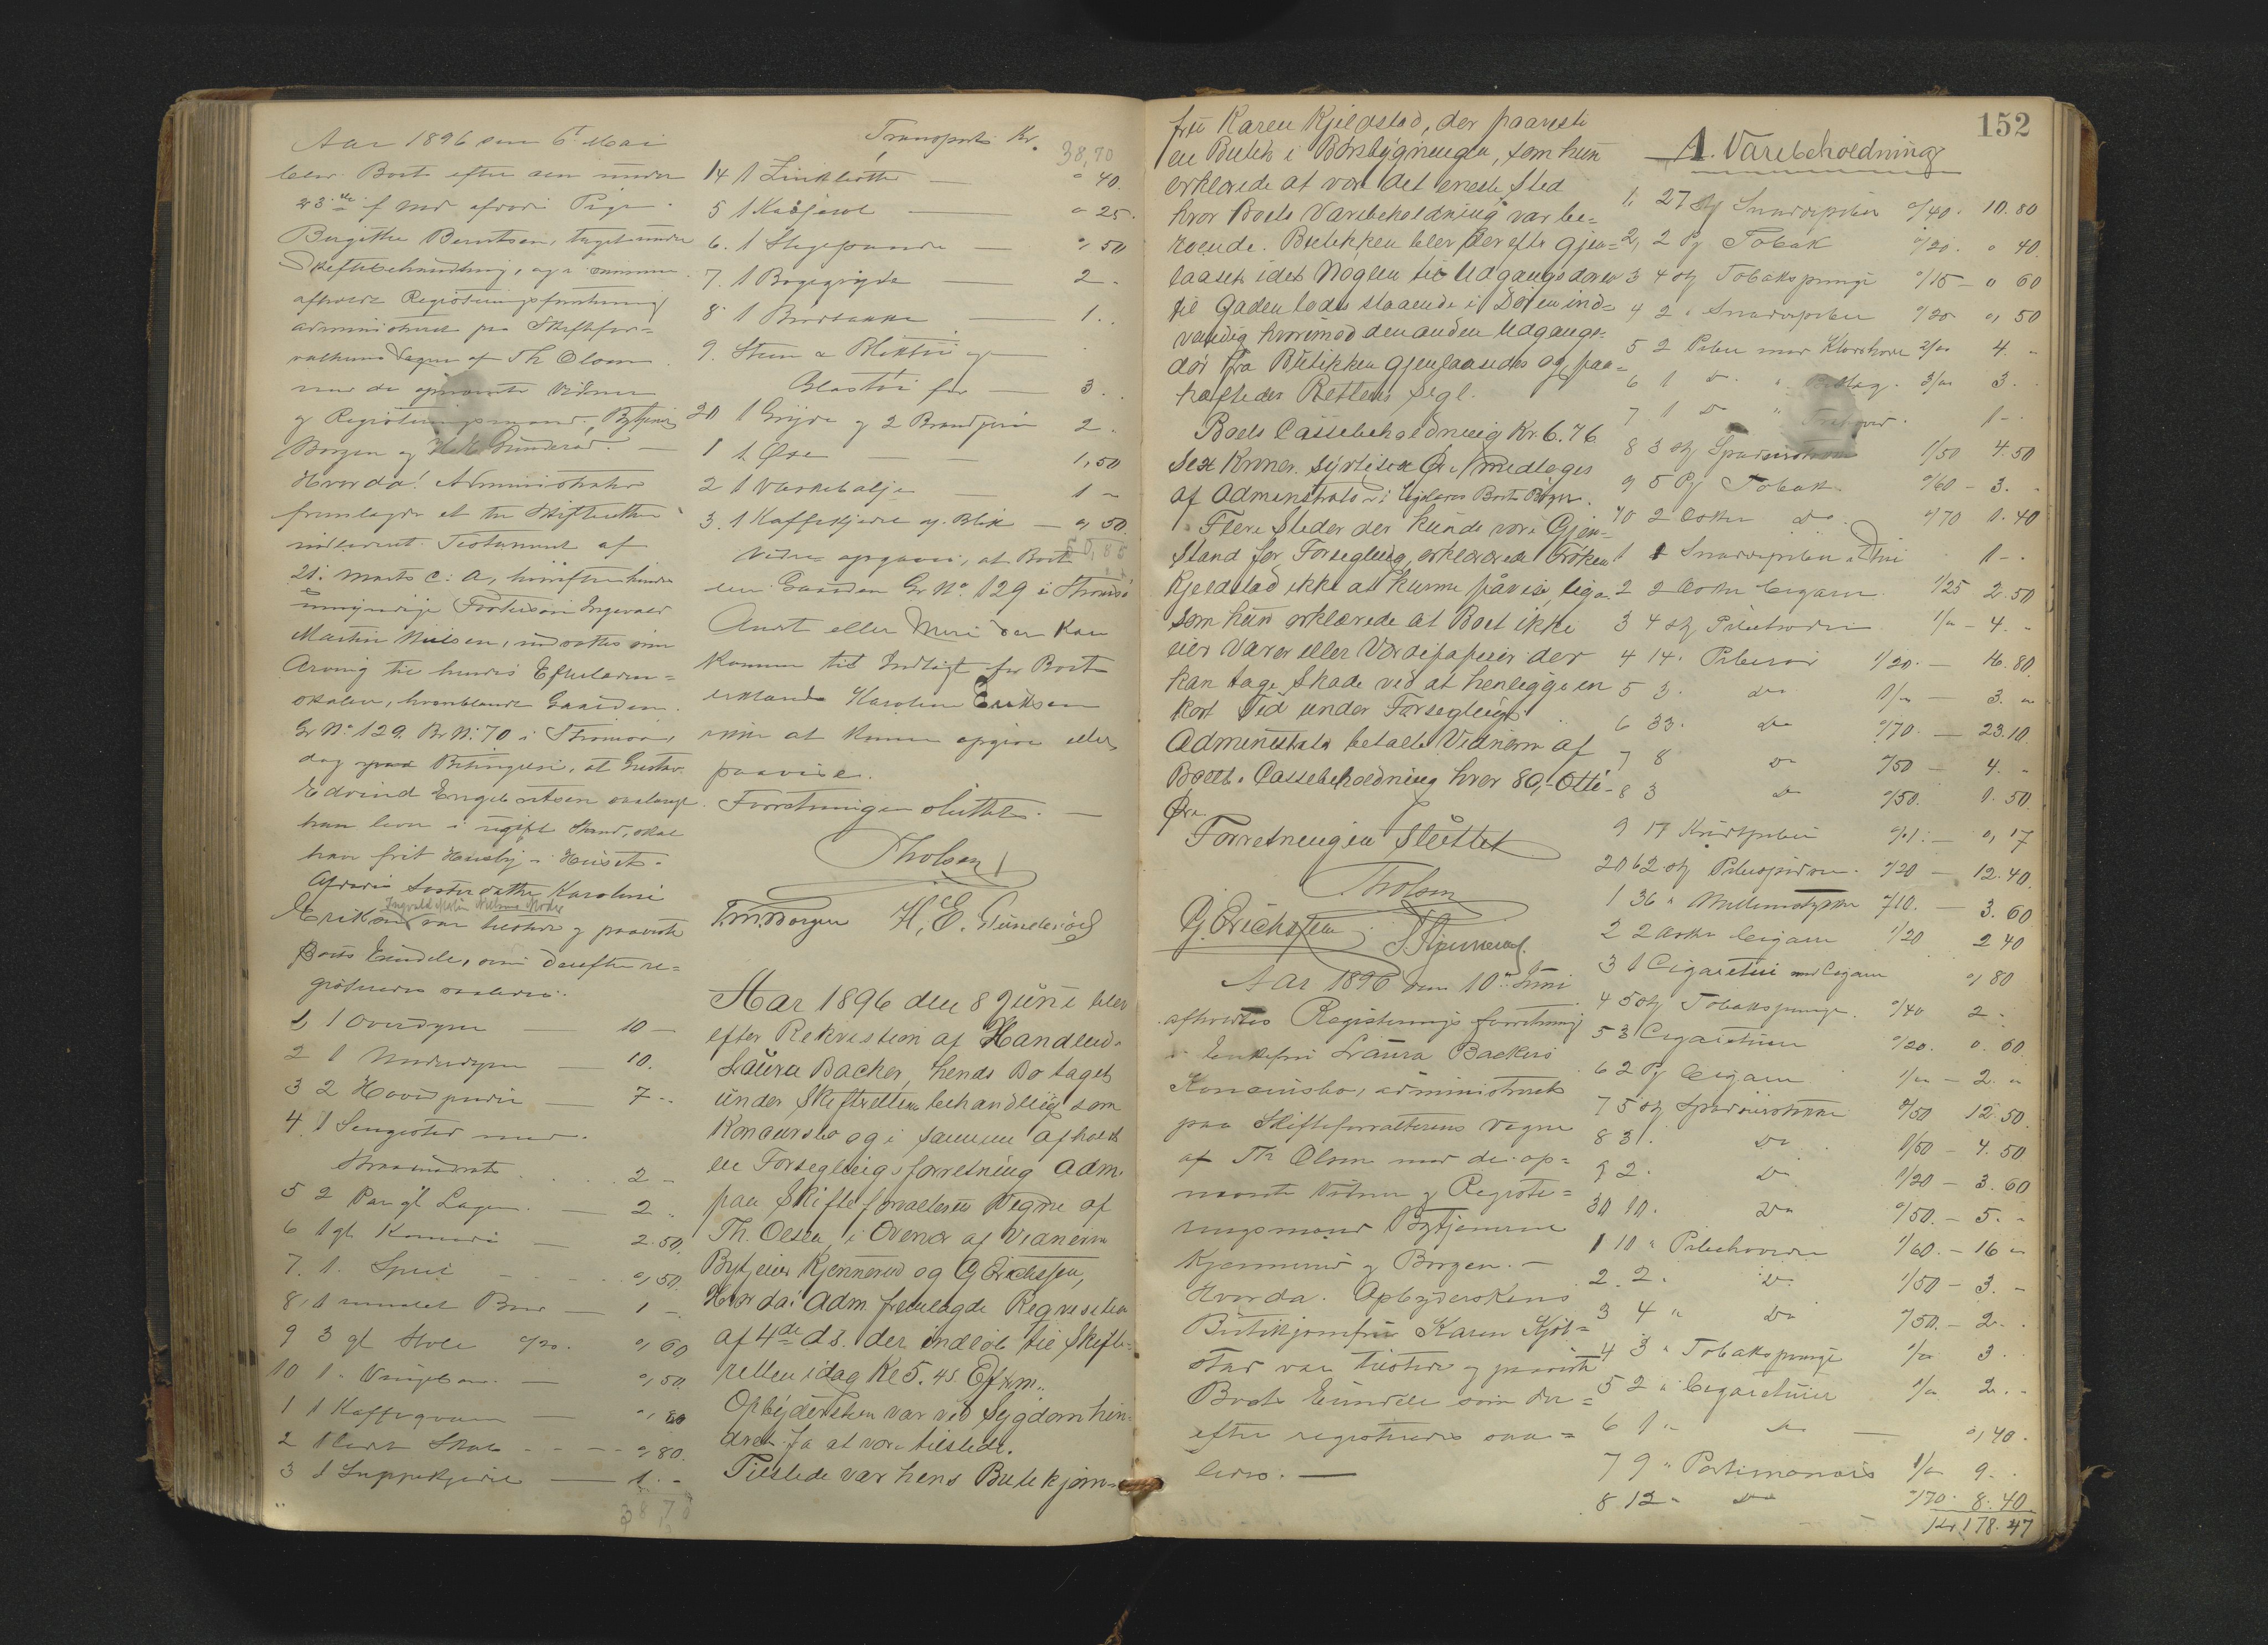 Aar 1896 den 6t Mai
blev Boet efter den under
23de f Md afdøde Pige
Bergithe Berntsen, taget under
Skiftebehandling, og i samme
afholdt Registreringsforretning
administreret paa Skiftefor=
valterens Vegne af Th Olsen
med de opnævnte Vidner
og Registreringsmænd, Bytjener
Borgen og H. E. Günderød. —
Hvorda! Administrator
fremlagde et til Skifteretten
indleveret Testament af
21. Marts c: a, hvorefter hendes
umyndige Fostersøn Ingevald
Martin Nielsen, indsættes som
Arving til hendes Efterladen=
skaber, hvoriblandt Gaarden
Gr No 129. Br No 70 i Tromsø,
dog paa Betingelse, at Gustav
Edvind Engebertsen saalænge
han lever i ugift Stand, skal
have frit Huusly i Huset.
Afdødes Søsterdatter Karoline
Ingvald Martin Nielsens Moder
Eriksen var tilstede og paaviste
Boets Eiendele, som derefter re=
gistreredes saaledes.
1, 1 Overdyne — 10 —
2 1 Underdyne — 10.
3 2 Hovedpuder — 7 --
4. 1 Sengested med
Straamadrats . . . 2 -
5 2 Par gl Lagen. — 2 -
6 1 gl Komode — 2.50.
7. 1. Speil - - - 0,50.
8, 1 umalet Bord — 1 -
9 3 gl Stole 0/20. 0,60
10 1 — 0,50.
1 1 Kaffeqværn — 0,80
2 1 Skab - - - 0,80.
3 1 Suppekjedel — 1. -
38 70
Transport Kr. 38,70
14 1 Zinkbøtte — 0 40.
5 1 — 0 25.
6. 1 Stegepande — 0, 50
7. 1 Bagegryde — 2 -
8 1 Brødbakke — 1 . .
9. Steen & Bliktøi og
Glastøi for — 3. .
20 1 Gryde og 2 Brandjern 2 -
1 1 Øxe — 1,50
2 1 Vaskebalje — 1 -
3. 1 Kaffekjedel af Blik — 0, 50.
Videre opgaves, at Boet
eier Gaarden Gr No 129 i Tromsø
Andet eller Mere der kan
komme til Indtægt for Boet
erklærede Karoline Eriksen
ikke at kunne opgive eller
paavise.
Forretningen sluttet. —
Tholsen
T.M. Borgen H. E. Günderød
Aar 1896 den 8 Juni blev
efter Rekvistion af Handlende
Laüra Backer, hends Bo taget
ünder Skifterettens behandling som
Koncursbo og i samme afholdt
en Forseglingsforretning adm.
paa Skifteforvalterens Vegne af
Th. Olsen, i Overvær af Vidnerne
Bytjener Kjennerud og G Erichssen,
Hvorda: Adm fremlagde Reqvisition
af 4de ds. der indløb til Skifte-
retten idag Kl 5. 45 Efterm.
Opbydersken var ved Sygdom hin-
dret fra at være tilstede.
Tilstede var hens Butikjom-
152
frü Karen Kjeldstad, der paaviste
en Butik i Børsbygningen, som hün
erklærede at være det eneste Sted
hvor Boets Varebeholdning var be=
roende. Butikken blev derefter gjen=
laaset, idet Nøglen til Udgangsdøren
til Gaden lodes staaende i Døren ind=
vendig hvorimod den anden Udgangs-
dør fra Butikken gjenlaasedes og paa=
hæftedes Rettens Segl.
Boets Cassebeholdning Kr. 6.76
Sex Kroner. Syttisex Øre / medtoges
af Administrator
Flere Steder der künde være Gjen-
stand for Forsegling, erklærede Frøken
Kjeldstad ikke at kunne påvise, lige-
som hün erklærede at Boet ikke
eier Varer eller Værdipapirer der
kan tage Skade ved at henligge en
kort Tid under Forsegling.
Administrator betalte Vidnerne af
Boets Cassebeholdning hver 80,- Otti-
Øre.
Forretningen Slüttet
Tholsen
G. Erichssen S. Kjennerud.
Aar 1896 den 10de Juni
afholdtes Registreringsforretning
i Enkefru Laüra Backers
Koncursbo, administreret
paa Skifteforvalterens Vegne
af Th Olsen med de op=
nævnte Vidner og Registre=
ringsmænd Bytjenerne
Kjennerud og Borgen. —
Hvorda. Opbyderskens
Butikjomfru Karen Kjel=
stad var tilstede og paaviste
Boets Eiendele som der=
efter registreredes saa=
ledes. —
A. Varebeholdning
1, 27 stk Snadepiber 0/40. 10.80
2, 2 Pg Tobak 0/20. 0 40
3 4 stk Tobakspunge 0/15 — 0 60
4 2 " Snadepiber 0/25 0, 50
5 2 Piber med 2/00 4. -
6 1 Do " 3/00 3. .
7 1 Do " 1 - .
8 3 stk Spadserstokke 1/50 4.50
9 5 Pg Tobak 0/60 — 3. -
10 2 Æsker Do 0/70 1.40
1 1 Snadepibe i Etui 1 - .
2 2 Æsker Cigarer 1/25 2.50
3 4 stk Pibehoveder 1/00 - 4. -
4 14 " Piberør 1/20. — 16.80
5 3. do 1/00 — 3. -
6 33. Do 0/70. — 23.10.
7 8 Do 0/50 — 4. -
8 3 Do 0/50. 1.50
9 17 Kridtpiber 0/01. — 0, 17
20 62 stk Pibespidser 0/20 — 12.40.
1 36 " Mellemstykker 0/10. — 3.60
2 2 Æsker Cigarer 1/20 2 40
3 1 Cigaretui med Cigarer 0, 80
4 5 stk Tobakspunge. 0/40 2 -
5 3 Cigaretuier 0/20. 0. 60
6 2 Pg Cigarer 1/00 — 2. -
7 5 stk Spadserstokke 2/50 12.50.
8 3 ". Do 1/50 — 4. 50
9 2. Do 1/20 — 3. 60
30 10. Do 0/50. — 5. -
1 10 " Pibehoveder 1/60. — 16 -
2. 2. Do 1/50 — 3. -
3 4 " Do 0/50. — 2 . .
4 3 " Tobakspunge 1/00 3.
5 2 " Cigaretuier 1/00 2. .
6 1 " do — 0, 40.
7 9 " Portemonais 1/00 9. .
8 12 " Do 0/70. 8.40
Kr 178.47